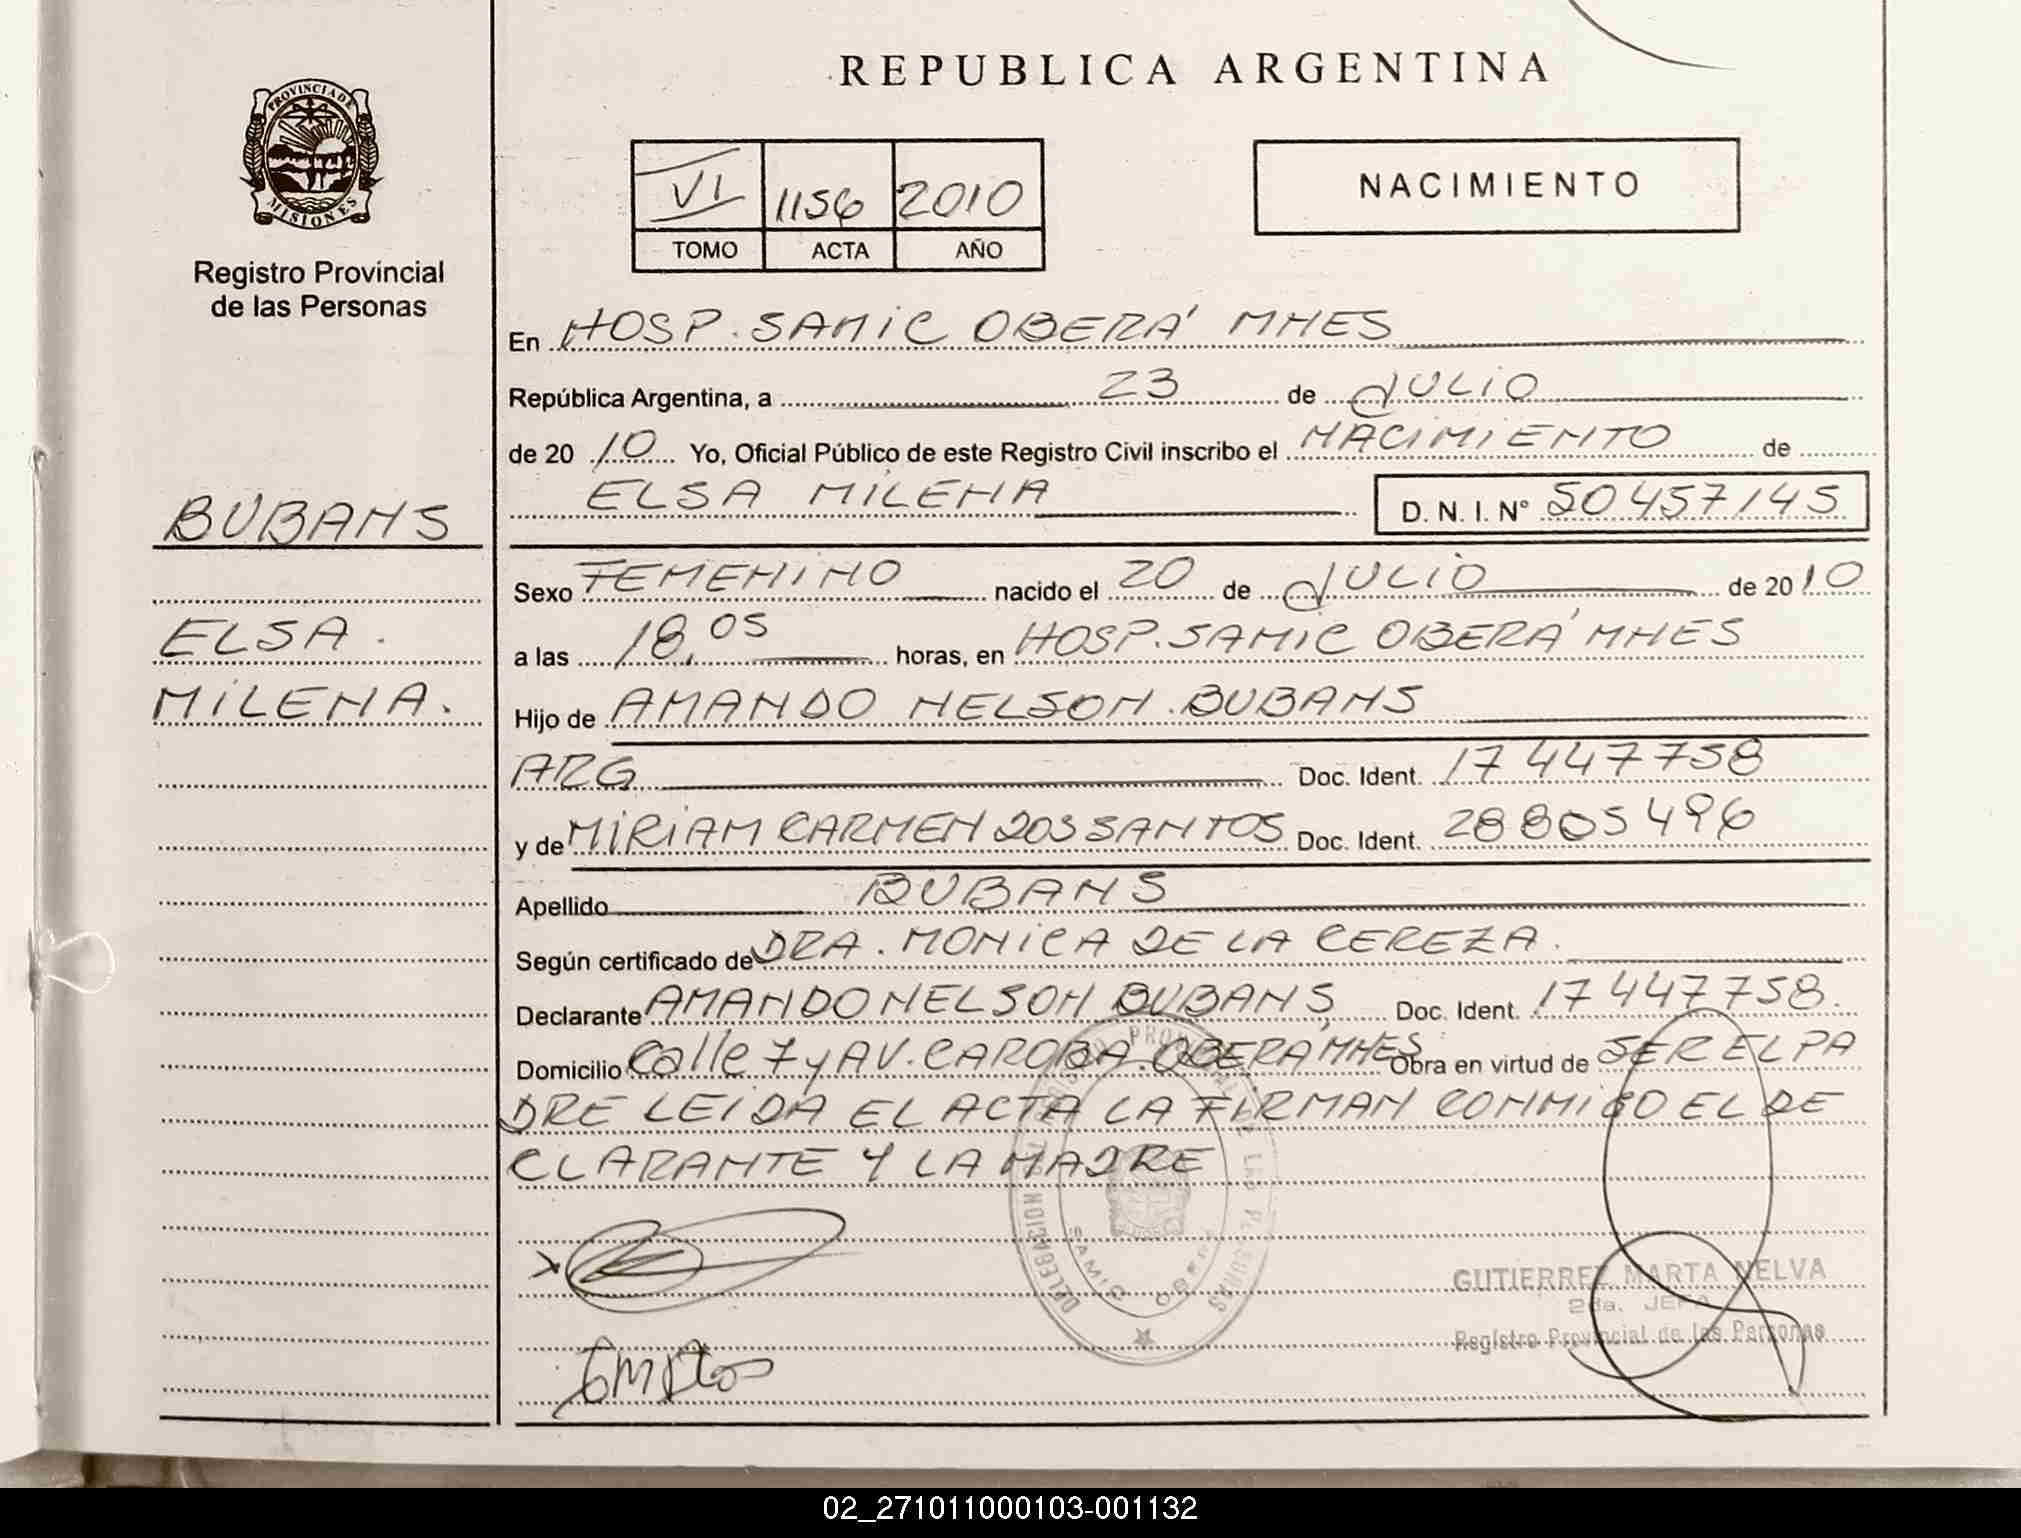 REPUBLICA ARGENTINA
PROVINCIA DE
MISIONES
Registro Provincial
de las Personas
VI 1156 2010
TOMO ACTA AÑO
NACIMIENTO
En HOSP. SAMIC OBERÁ MNES
República Argentina, a 23 de JULIO
de 2010 Yo, Oficial Público de este Registro Civil inscribo el NACIMIENTO de
ELSA MILENA D. N. I. Nº 50457145
BUBANS
ELSA.
MILENA.
Sexo FEMENINO nacido el 20 de JULIO de 2010
a las 18,05 horas, en HOSP. SAMIC OBERÁ MNES
Hijo de AMANDO NELSON BUBANS
ARG Doc. Ident. 17447758
y de MIRIAM CARMEN DOS SANTOS Doc. Ident. 28805496
Apellido BUBANS
Según certificado de DRA. MONICA DE LA CEREZA.
Declarante AMANDO NELSON BUBANS Doc. Ident. 17447758.
Domicilio Calle 7 y AV. CAROBA. OBERA MNES Obra en virtud de SER EL PA
DRE LEIDA EL ACTA LA FIRMAN CONMIGO EL DE
CLARANTE Y LA MADRE
DELEGACION
SAMIC OBERA
GUTIERREZ MARTA NELVA
2da. JEFA
Registro Provincial de las Personas
02_271011000103-001132